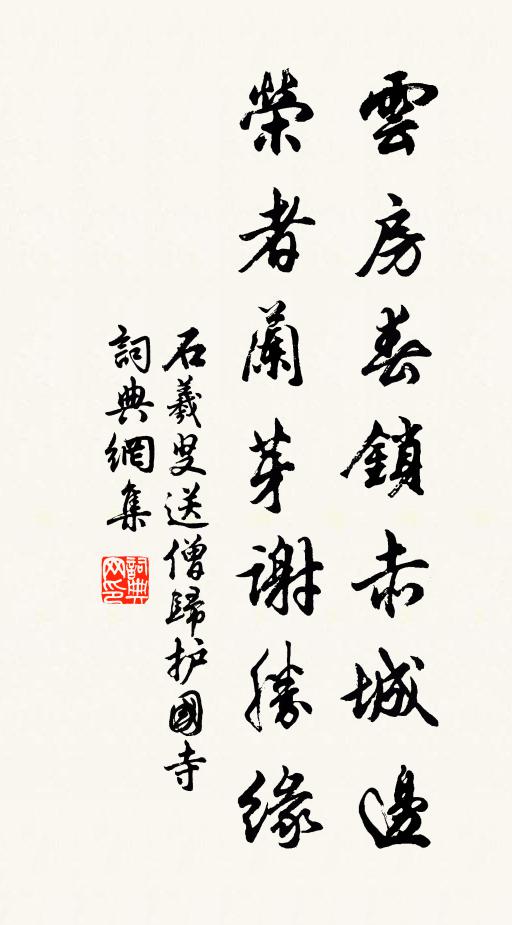 雲房春鎖赤城邊
榮者蘭芽謝勝緣
石羲叟送僧歸护國寺
詞典網集
詞典
网印